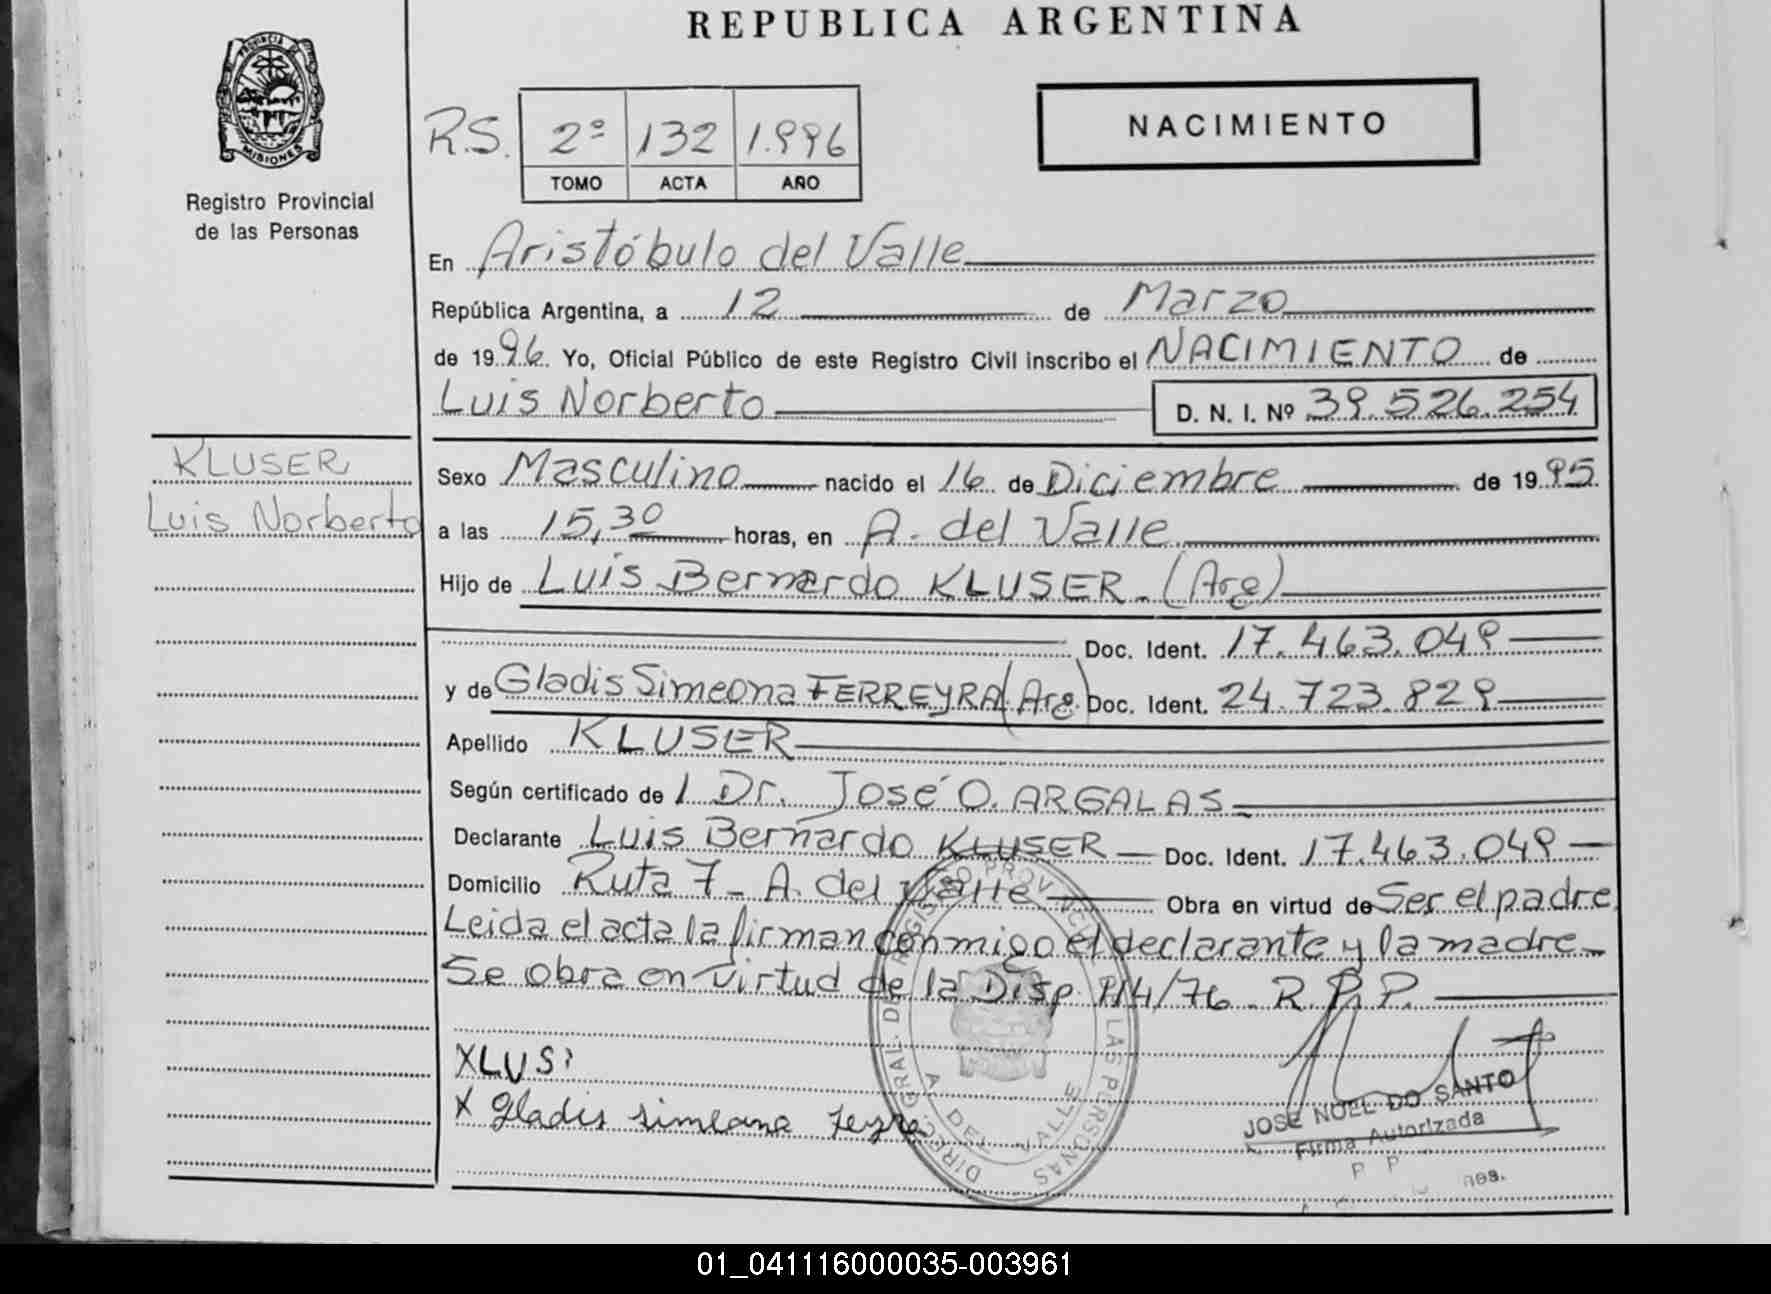 REPUBLICA ARGENTINA
PROVINCIA DE
MISIONES
Registro Provincial
de las Personas
R.S. 2º 132 1.996
TOMO ACTA AÑO
NACIMIENTO
En Aristóbulo del Valle
República Argentina, a 12 de Marzo
de 1996. Yo, Oficial Público de este Registro Civil inscribo el NACIMIENTO de
Luis Norberto D. N. I. Nº 39.526.254
KLUSER
Luis Norberto
Sexo Masculino nacido el 16 de Diciembre de 1995
a las 15,30 horas, en A. del Valle
Hijo de Luis Bernardo KLUSER. (Arg)
Doc. Ident. 17.463.049
y de Gladis Simeona FERREYRA (Arg.) Doc. Ident. 24.723.829
Apellido KLUSER
Según certificado de / Dr. José O. ARGALAS
Declarante Luis Bernardo KLUSER Doc. Ident. 17.463.049
Domicilio Ruta 7 - A. del Valle Obra en virtud de Ser el padre
Leida el acta la firman conmigo el declarante y la madre
Se obra en virtud de la Disp. 114/76 R.P.P.
XLUS
X Gladis simeona
DIREC. GRAL. DEL REGISTRO PROVINCIAL DE LAS PERSONAS
A DEL VALLE
JOSE NOEL DO SANTO
Firma Autorizada
01_041116000035-003961